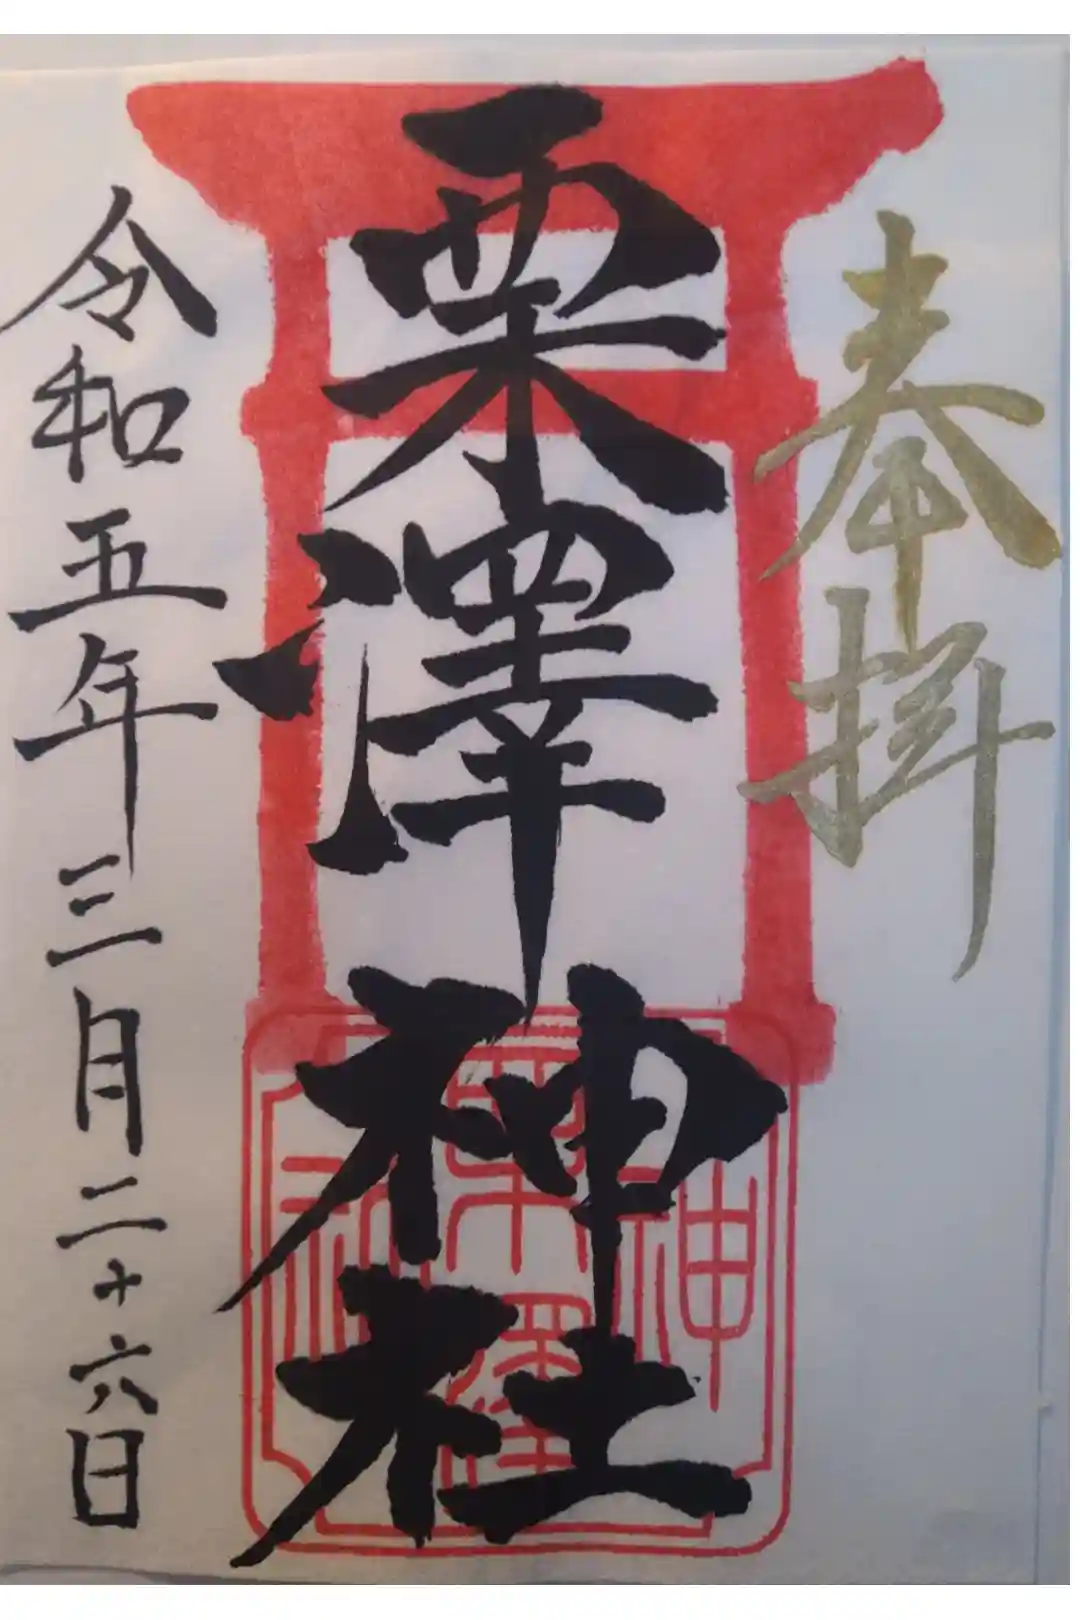 奉拝
栗澤神社
令和五年三月二十六日
神
栗澤
社